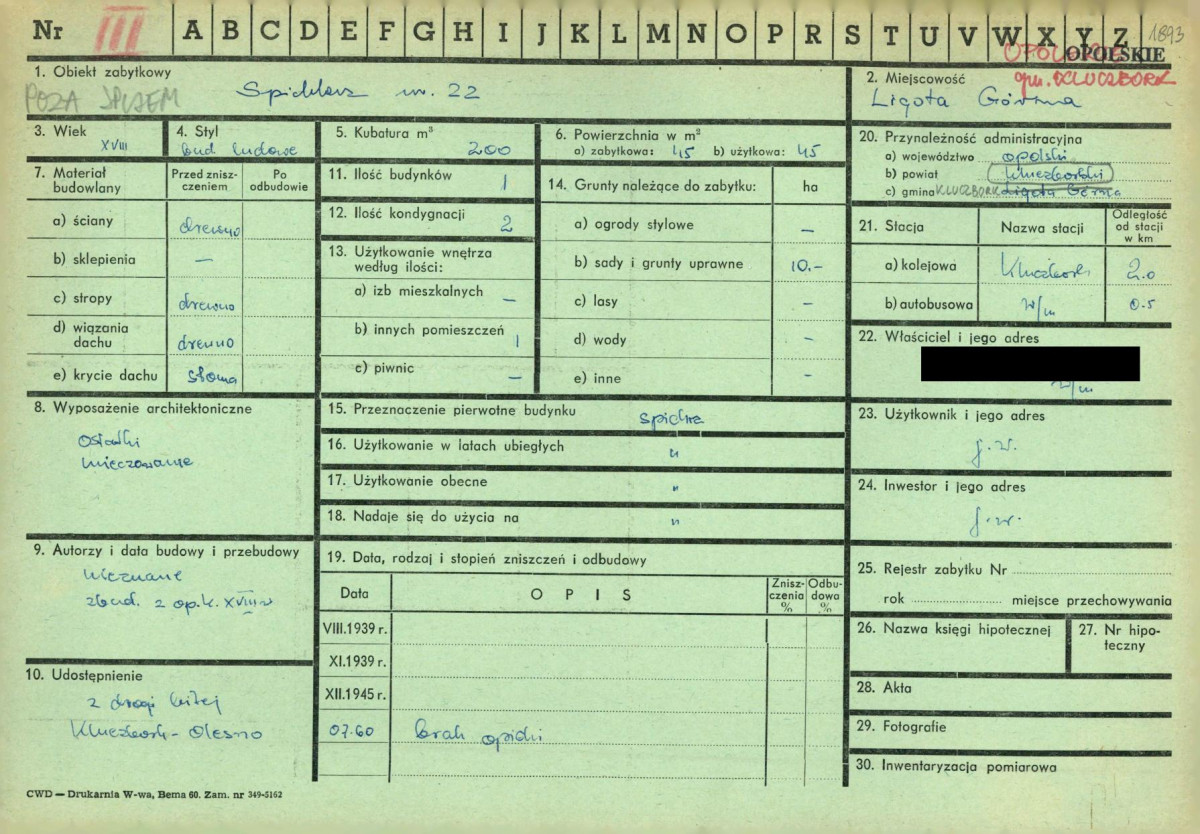 Nr III A B C D E F G H I J K L M N O P R S T U V W X Y Z 1893
OPOLSKIE
gm. KLUCZBORK
1. Obiekt zabytkowy
POZA SPISEM
Spichlerz nr. 22
2. Miejscowość
Ligota Górna
3. Wiek
XVIII
4. Styl
bud ludowe
5. Kubatura m³
200
6. Powierzchnia w m²
a) zabytkowa: 45 b) użytkowa: 45
20. Przynależność administracyjna
a) województwo opolski
b) powiat kluczborski
c) gmina KLUCZBORK Ligota Górna
7. Materiał budowlany
Przed zniszczeniem
Po odbudowie
a) ściany drewno
b) sklepienia —
c) stropy drewno
d) wiązania dachu drewno
e) krycie dachu słoma
11. Ilość budynków 1
12. Ilość kondygnacji 2
13. Użytkowanie wnętrza według ilości:
a) izb mieszkalnych —
b) innych pomieszczeń 1
c) piwnic —
14. Grunty należące do zabytku: ha
a) ogrody stylowe —
b) sady i grunty uprawne 10.-
c) lasy -
d) wody -
e) inne -
21. Stacja Nazwa stacji Odległość od stacji w km
a) kolejowa Kluczbork 2.0
b) autobusowa w/m 0.5
22. Właściciel i jego adres
w/m
8. Wyposażenie architektoniczne
15. Przeznaczenie pierwotne budynku
16. Użytkowanie w latach ubiegłych "
17. Użytkowanie obecne "
18. Nadaje się do użycia na "
23. Użytkownik i jego adres
j.w.
24. Inwestor i jego adres
j.w.
9. Autorzy i data budowy i przebudowy
nieznane
zbud. z op.k. XVIII w
19. Data, rodzaj i stopień zniszczeń i odbudowy
Data OPIS Zniszczenia % Odbudowa %
VIII.1939 r.
XI.1939 r.
XII.1945 r.
07.60 brak opieki
10. Udostępnienie
z drogi bitej
Kluczbork - Olesno
25. Rejestr zabytku Nr
rok miejsce przechowywania
26. Nazwa księgi hipotecznej
27. Nr hipoteczny
28. Akta
29. Fotografie
30. Inwentaryzacja pomiarowa
CWD — Drukarnia W-wa, Bema 60. Zam. nr 349-5162